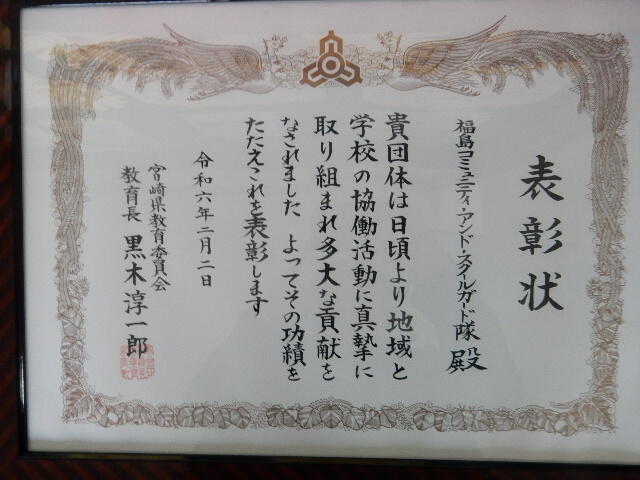 表彰状
福島コミュニティ・アンド・スクールガード隊 殿
貴団体は日頃より地域と
学校の協働活動に真摯に
取り組まれ多大な貢献を
なされました よってその功績を
たたえこれを表彰します
令和六年二月二日
宮崎県教育委員会
教育長 黒木淳一郎